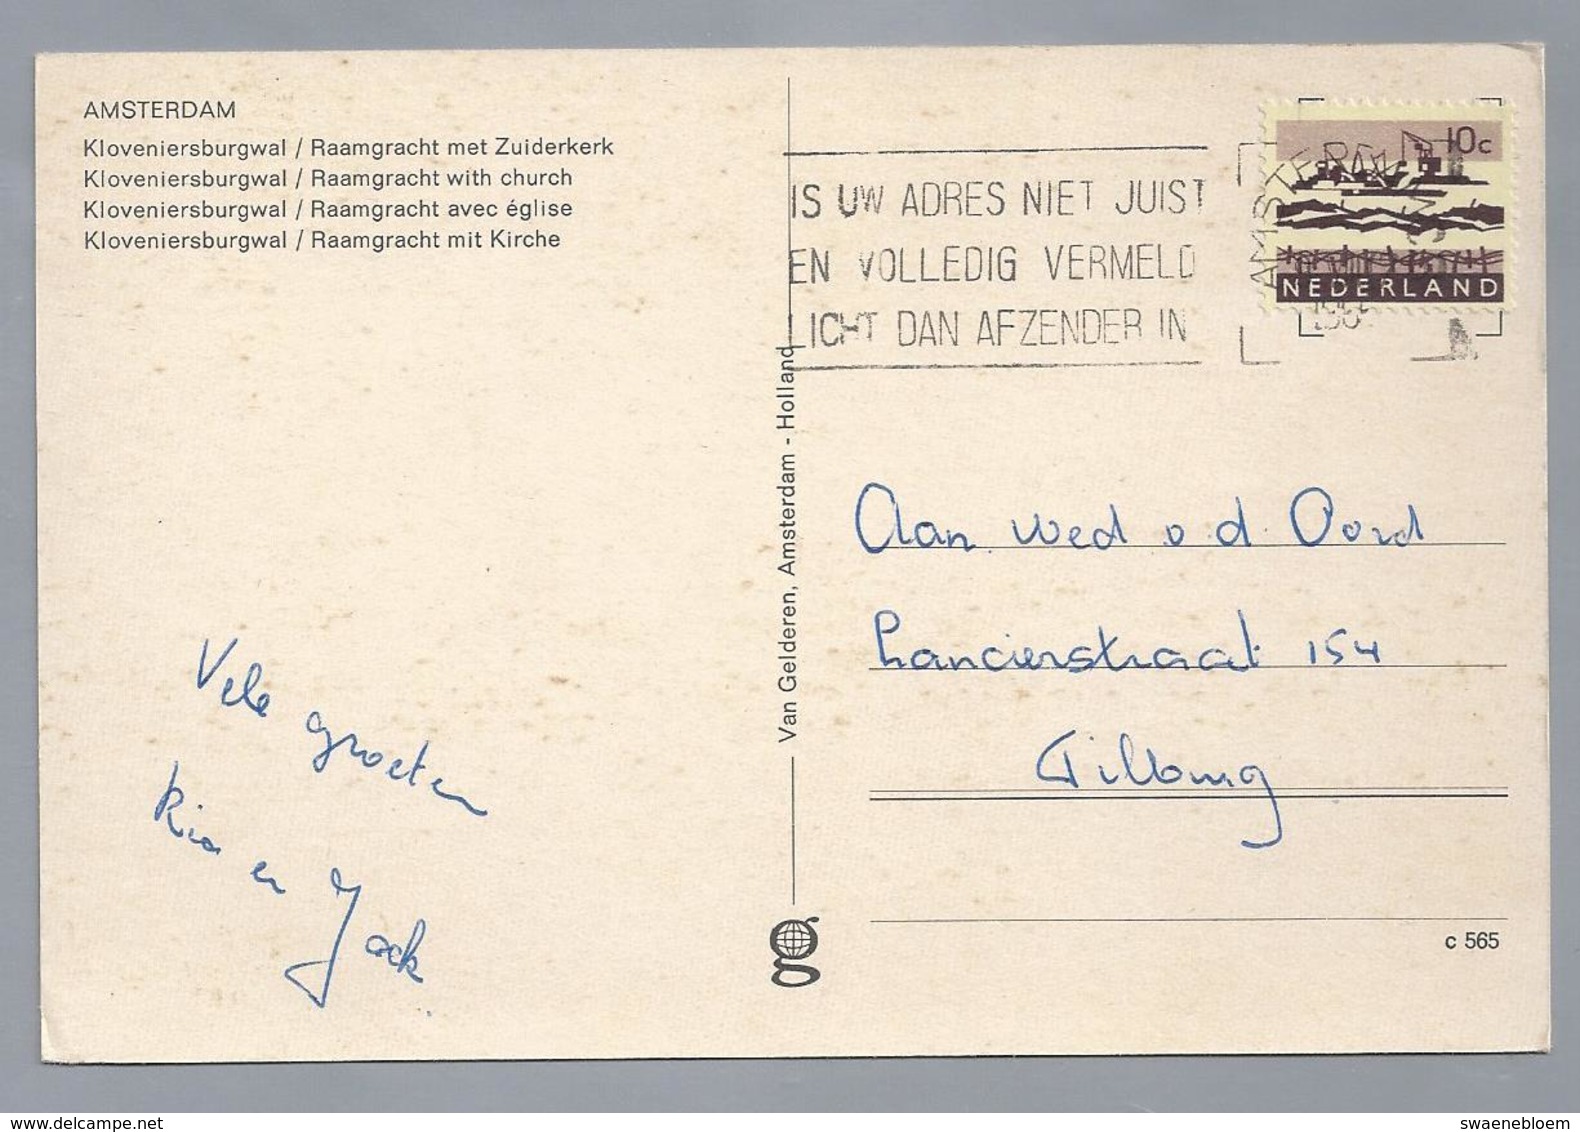 AMSTERDAM
Kloveniersburgwal / Raamgracht met Zuiderkerk
Kloveniersburgwal / Raamgracht with church
Kloveniersburgwal / Raamgracht avec église
Kloveniersburgwal / Raamgracht mit Kirche
IS UW ADRES NIET JUIST
EN VOLLEDIG VERMELD
LICHT DAN AFZENDER IN
AMSTERDAM
10c
NEDERLAND
Van Gelderen, Amsterdam - Holland
Aan wed v d. Oord
Lancierstraat 154
Tilburg
Vele groeten
Ria en Jack.
g
c 565
www.delcampe.net
swaenebloem